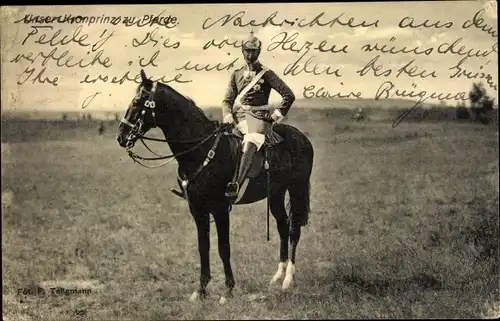 Unser Kronprinz zu Pferde.
Nachrichten aus dem
Felde! Dies von Herzen wünschend
verbleibe ich mit den besten
Ihre
Claire Brügmann
Fot. F. Tellgmann